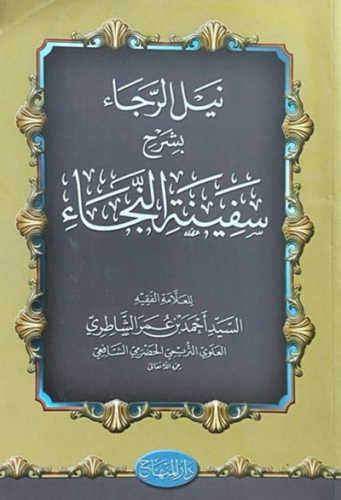 نَيْلُ الرَّجَاءِ
بِشَرْحِ
سَفِينَةِ النَّجَاءِ
لِلعَلَّامَةِ الفَقِيهِ
السَّيِّد أَحْمَد بْن عُمَر الشَّاطِرِي
العَلَوِيّ التَّرِيمِيّ الحَضْرَمِيّ الشَّافِعِيّ
رحمه الله تعالى
دار المنهاج